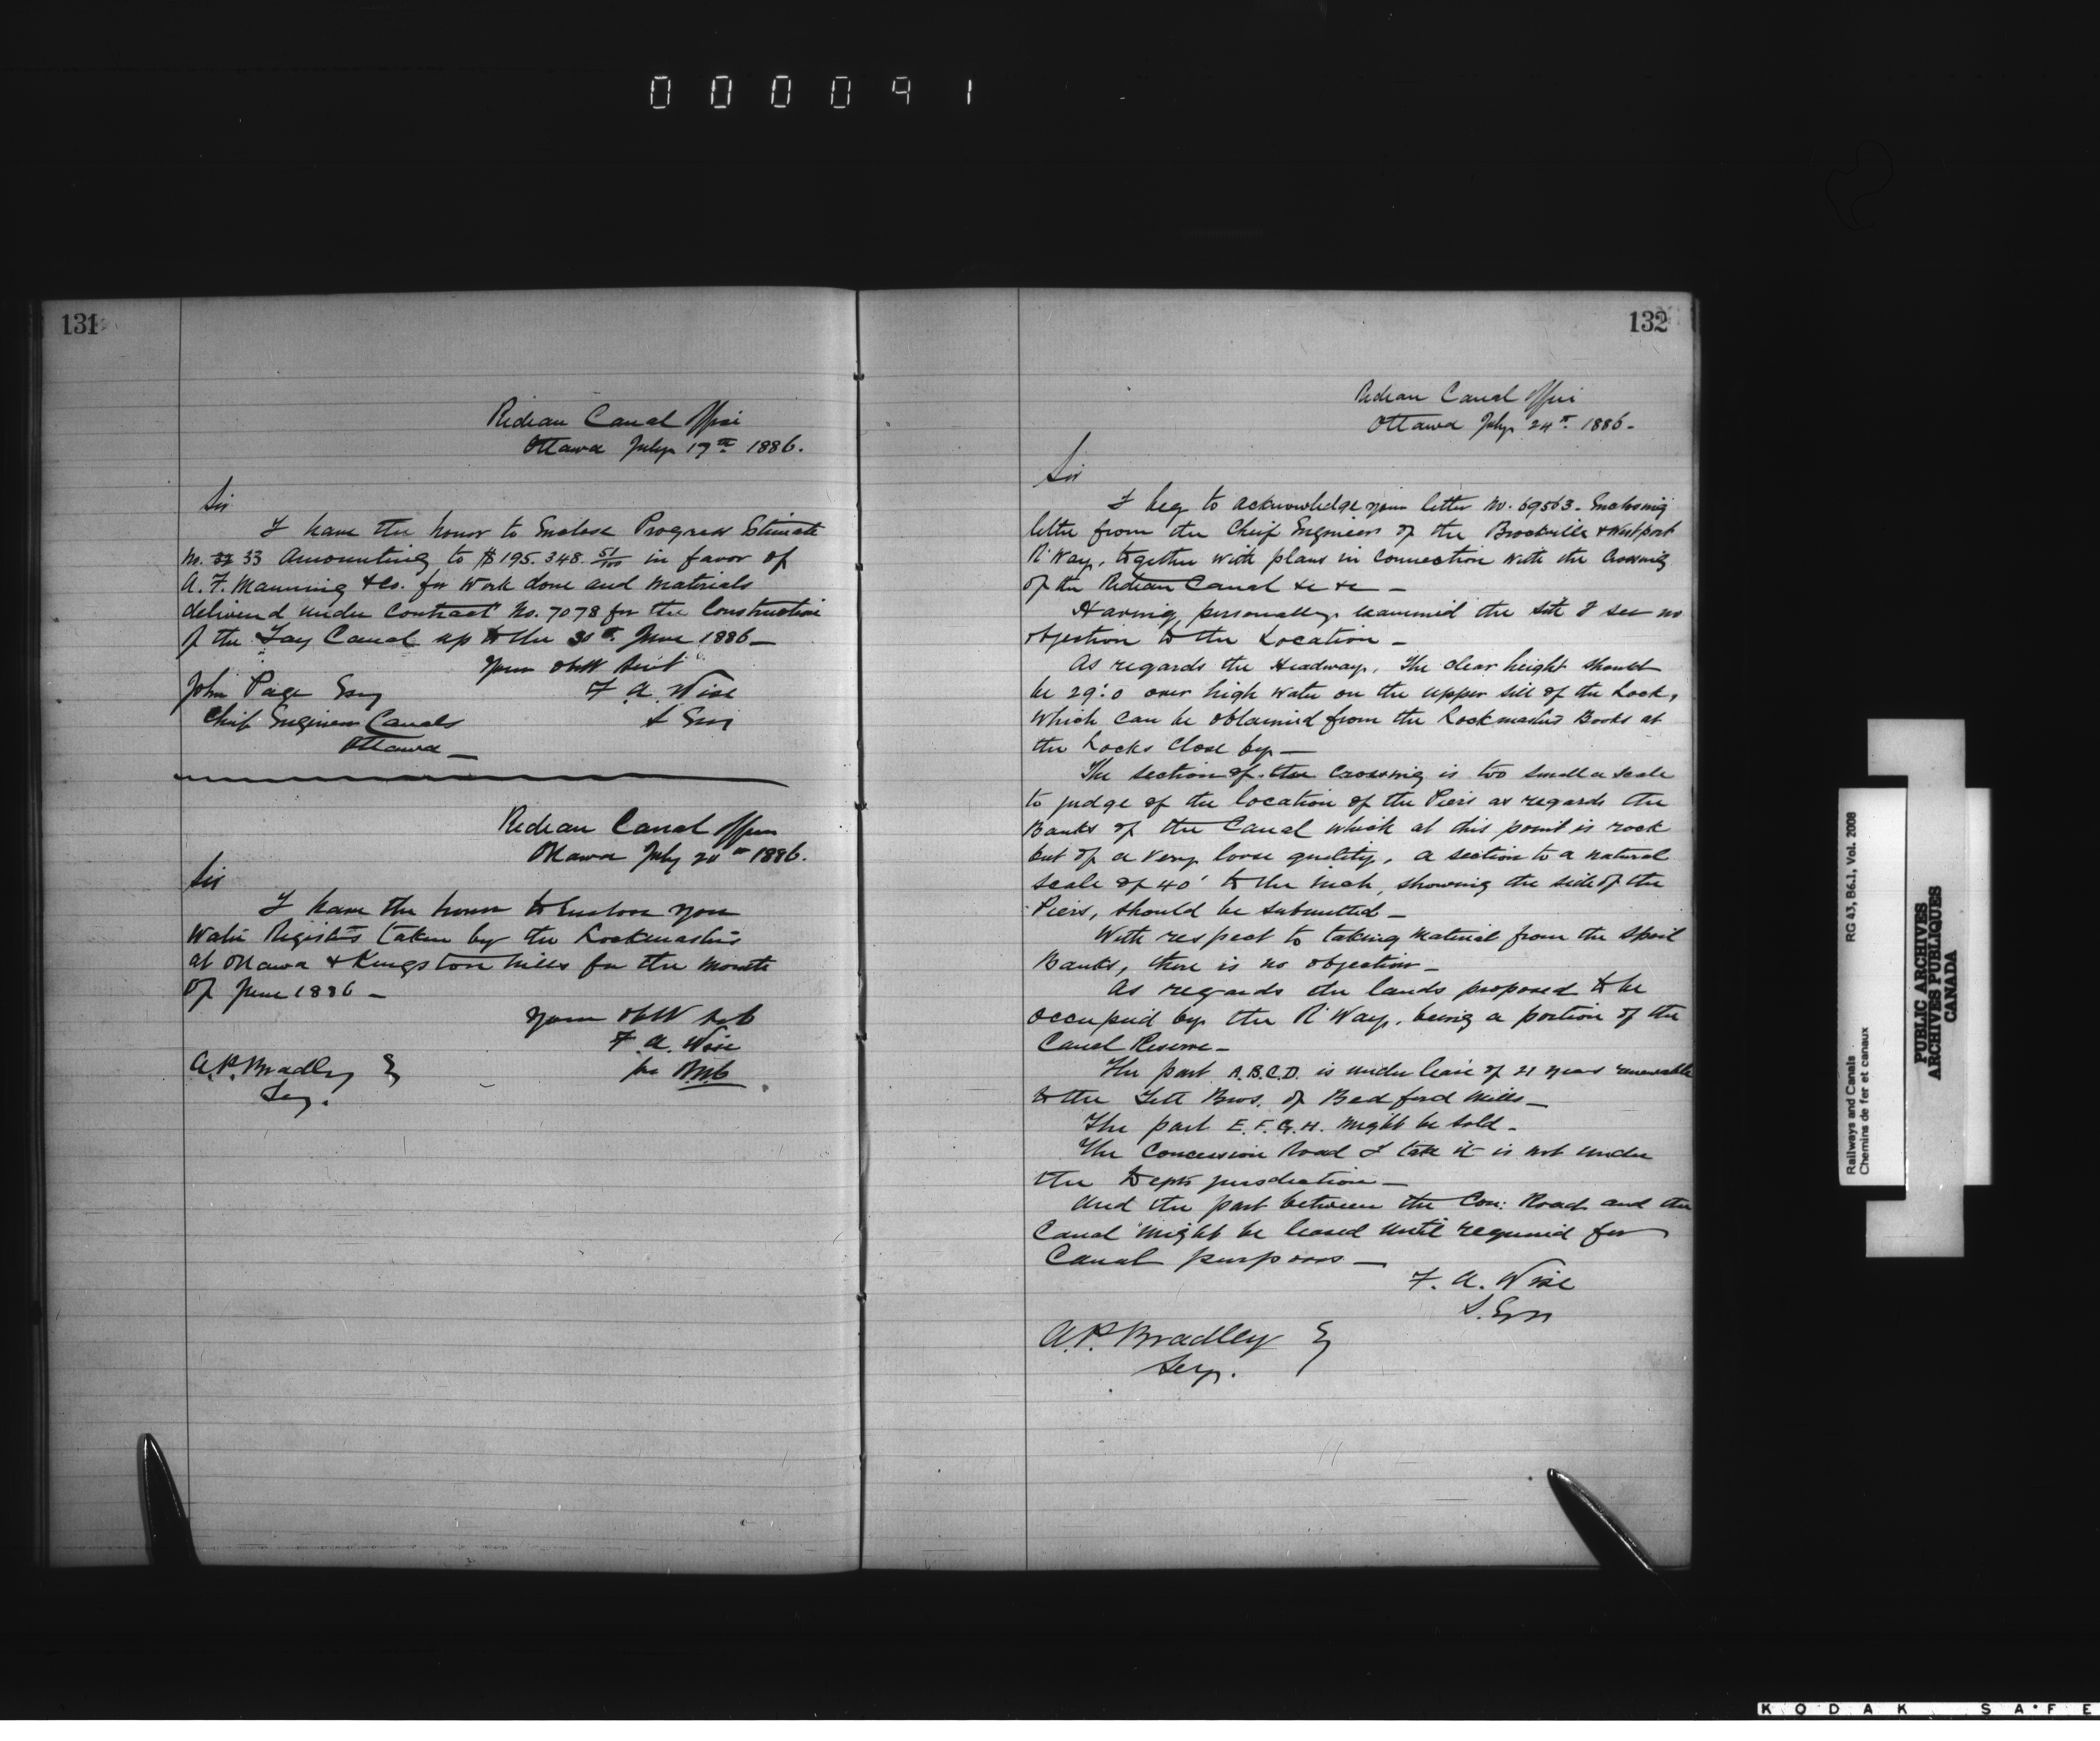 000091
131
Rideau Canal Office
Ottawa July 17th 1886.
Sir
I have the honor to Enclose Progress Estimate
No. 32 33 Amounting to $195.348 51/100 in favor of
A. F. Manning & Co. for Work done and Materials
delivered under Contract No. 7078 for the Construction
of the Tay Canal up to the 30th June 1886 —
Yours obdt Servt
F. A. Wise
S Eng
John Page Esq
Chief Engineer Canals
Ottawa —
Rideau Canal Office
Ottawa July 20th 1886.
Sir
I have the honor to Enclose you
Water Registers taken by the Lockmasters
at Ottawa & Kingston Mills for the month
of June 1886 —
Yours obdt Svt
F. A. Wise
per
A. P. Bradley E
Secy.
132
Rideau Canal Office
Ottawa July 24th 1886 —
Sir
I beg to acknowledge your letter No. 69563 — Enclosing
letter from the Chief Engineer of the Brockville & Westport
R'Way, together with plans in connection with the Crossing
of the Rideau Canal &c &c —
Having personally examined the site I see no
objection to the Location —
As regards the Headway, The clear height should
be 29'.0 over high water on the upper sill of the Lock,
which can be obtained from the Lockmasters Books at
the Locks close by —
The section of the Crossing is too small a scale
to judge of the location of the Piers as regards the
Banks of the Canal which at this point is rock
but of a very loose quality, a section to a natural
scale of 40' to the inch, showing the side of the
Piers, should be submitted —
With respect to taking material from the Spoil
Banks, there is no objection —
As regards the lands proposed to be
occupied by the R'Way, being a portion of the
Canal Reserve —
The part A.B.C.D. is under lease of 21 years renewable
to the Tett Bros. of Bedford Mills —
The part E.F.G.H. might be sold —
The Concession Road I take it is not under
the Depts jurisdiction —
And the part between the Con: Road and the
Canal might be leased until required for
Canal purposes —
F. A. Wise
S. Eng
A. P. Bradley E
Secy.
RG 43, B6.1, Vol. 2008
Railways and Canals
Chemins de fer et canaux
PUBLIC ARCHIVES
ARCHIVES PUBLIQUES
CANADA
KODAK SAFE